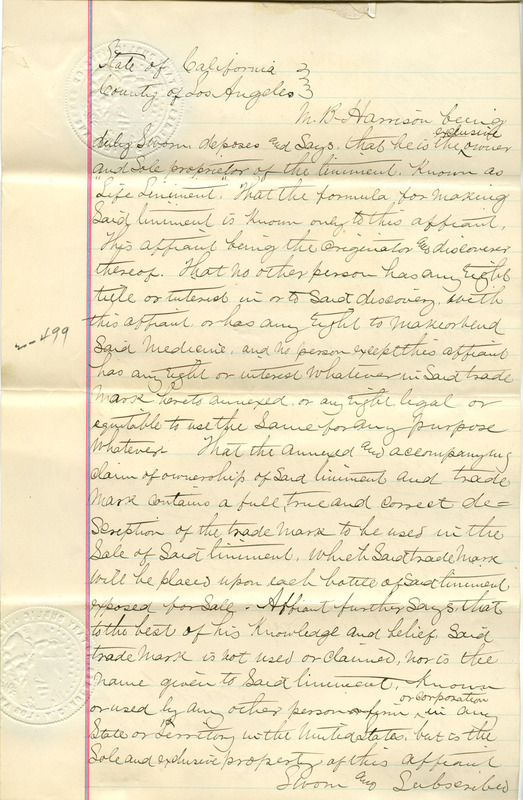 State of California }
County of Los Angeles }
M. B. Harrison being
duly Sworn deposes and Says, that he is the exclusive owner
and Sole proprietor of the liniment. Known as
"Life Liniment". That the formula for making
Said liniment is Known only to this affiant,
This affiant being the originator and discoverer
thereof. That no other person has any right
title or interest in or to Said discovery with
this affiant or has any right to make or vend
Said Medicine, and no person except this affiant
has any right or interest whatever in Said trade
Mark hereto annexed. or any right legal or
equitable to use the Same for any purpose
Whatever. That the annexed and accompanying
claim of ownership of Said liniment and trade
Mark contains a full, true and correct de=
Scription of the trade Mark to be used in the
Sale of Said liniment, which Said trade Mark
will be placed upon each bottle of Said liniment
exposed for Sale. Affiant further Says, that
to the best of his Knowledge and belief, Said
trade Mark is not used or claimed, nor is the
name given to Said liniment, Known
or used by any other person or firm or corporation in any
State or Territory in the United States, but is the
Sole and exclusive property of this affiant
Sworn and Subscribed
2-499